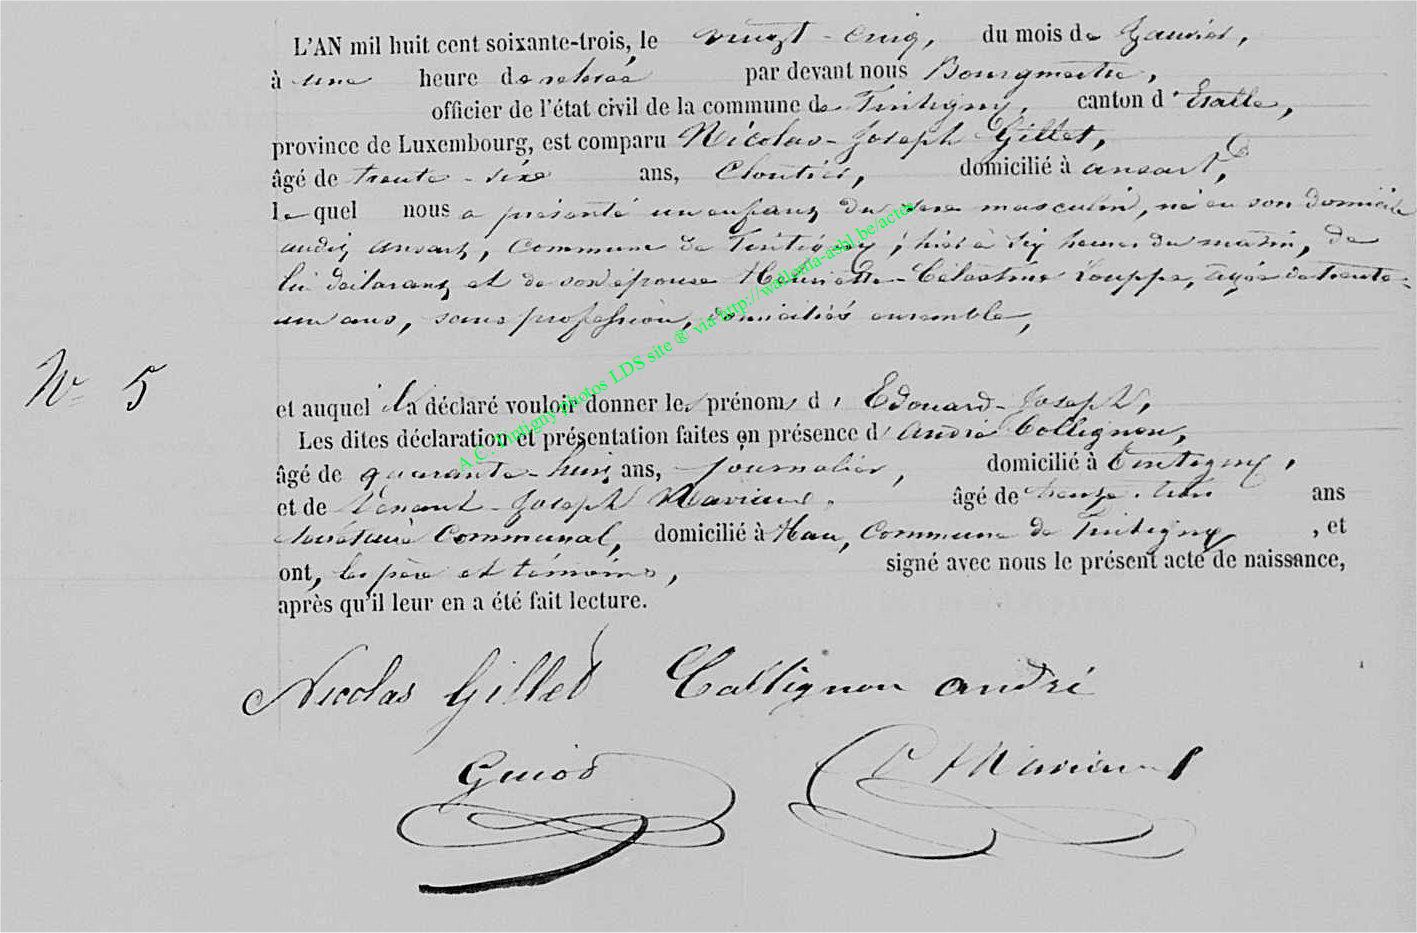 L'AN mil huit cent soixante-trois, le vingt-cinq, du mois de Janvier,
à une heure de relevée par devant nous Bourgmestre,
officier de l'état civil de la commune de Tintigny, canton d'Etalle,
province de Luxembourg, est comparu Nicolas-Joseph Gillet,
âgé de trente-six ans, Cloutier, domicilié à ansart,
lequel nous a présenté un enfant du sexe masculin, né en son domicile
audit ansart, commune de Tintigny, hier à dix heures du matin, de
lui déclarant et de son épouse Henriette-Célestine Louppe, âgée de trente-
un ans, sans profession, domiciliés ensemble,
N° 5
et auquel il a déclaré vouloir donner les prénoms d'Edouard-Joseph,
Les dites déclaration et présentation faites en présence d'andré Collignon,
âgé de quarante-huit ans, journalier, domicilié à Tintigny,
et de Joseph âgé de trente-trois ans
Communal, domicilié à Han, Commune de Tintigny, et
ont, les père et témoins, signé avec nous le présent acte de naissance,
après qu'il leur en a été fait lecture.
Nicolas Gillet Collignon andré
Guiot
A.C. Tintigny photos LDS site ® via http://wallonia-asbl.be/actes